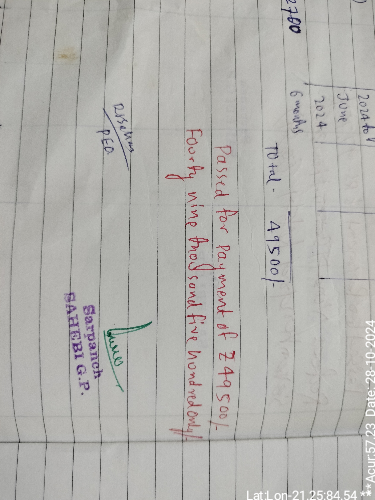 2024 to
June
2024
6 months
2700
Total - 49500/-
Passed for payment of ₹ 49500/-
Fourty nine thousand five hundred only/-
PEO
Sarpanch
SAHEBI G.P.
Lat:Lon-21.25:84.54 ***Acur:57.23 Date, 28-10-2024